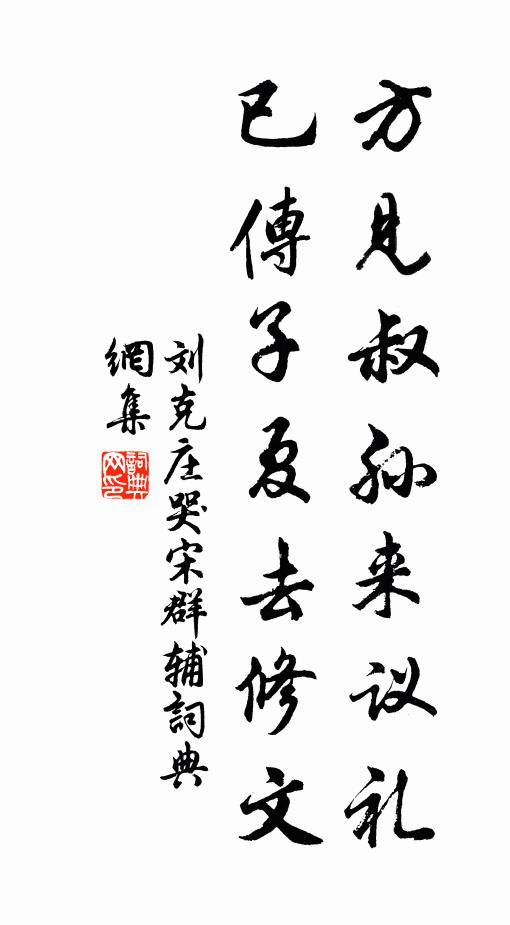 方见叔孙来议礼
已傳子夏去修文
刘克庄哭宋群辅詞典
網集
詞典網印